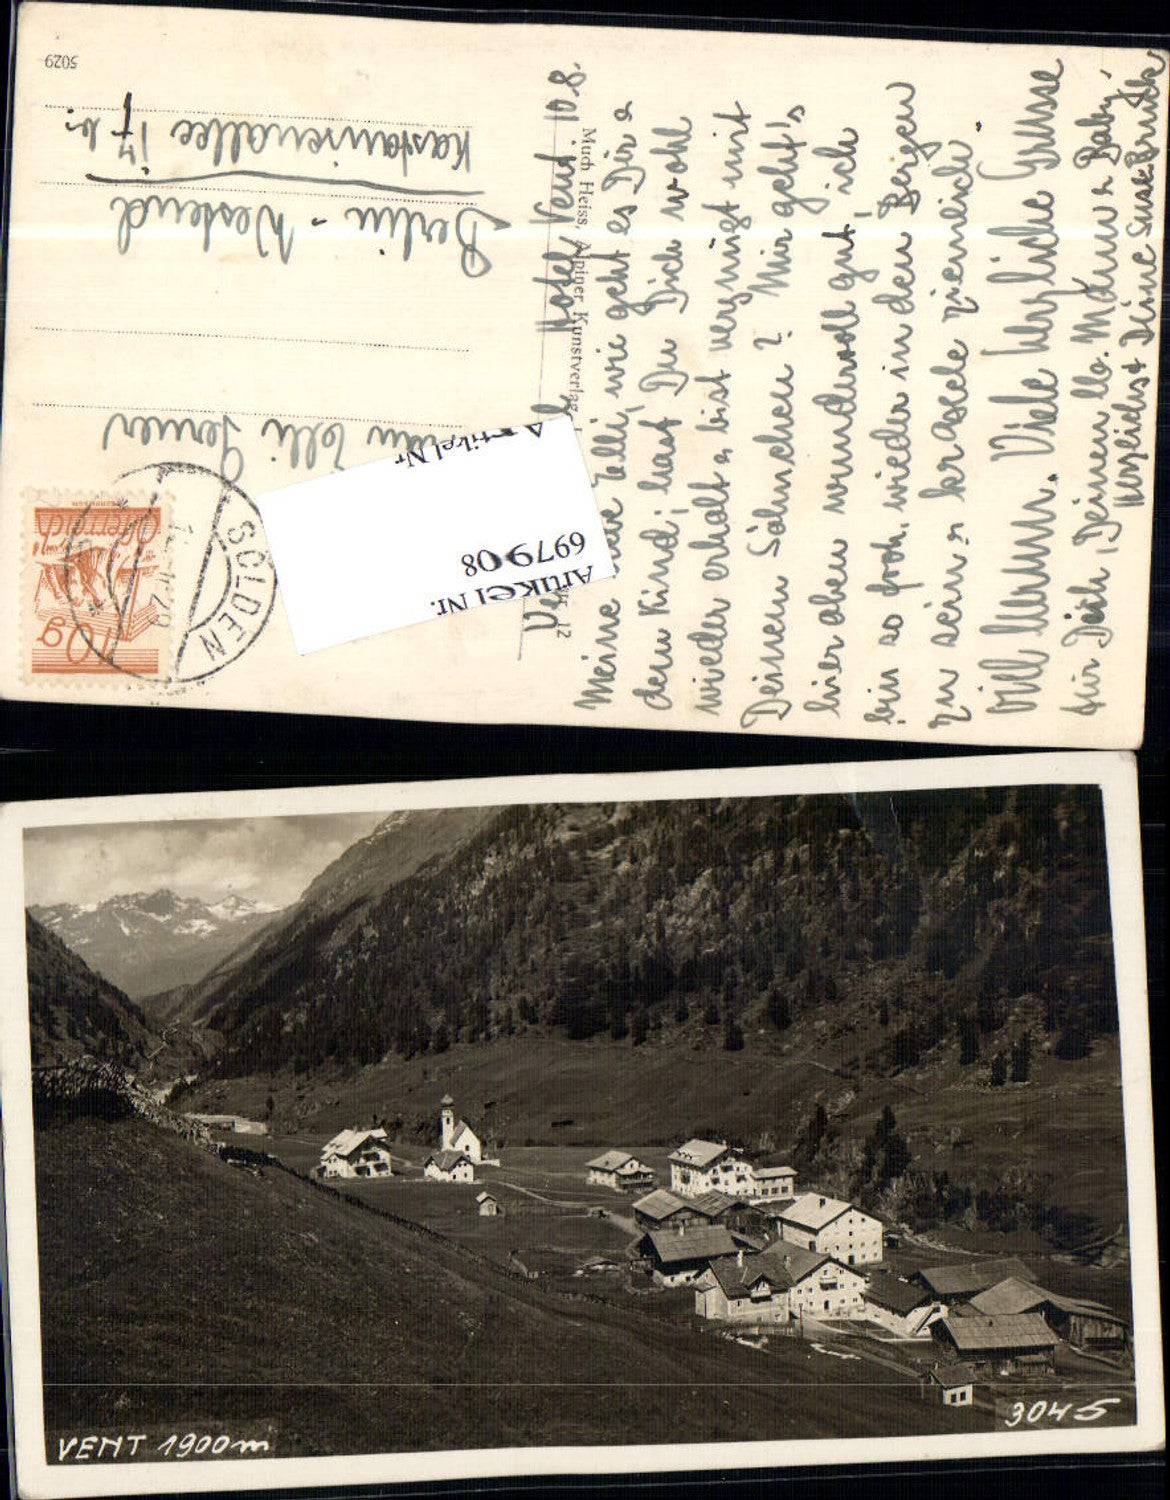 5029
Kastanienallee 17 b.
Berlin - Westend
Elli Gerner
Österreich
10 g
SÖLDEN
29
Artikel Nr.
697908
Artikel Nr.
Much Heiss, Alpiner Kunstverlag
12
Hotel Vent 10.8.
Meine liebe Elli, wie geht es Dir &
dem Kind, hast Du Dich wohl
wieder erholt & bist vergnügt mit
Deinem Söhnchen? Mir geht's
hier oben wundervoll gut, ich
bin so froh, wieder in den Bergen
zu sein & kraxele ziemlich
viel herum. Viele herzliche Grüsse
für Dich, Deinen lb. Mann & Baby,
herzlichst Deine Suse Bruck
VENT 1900m
3045